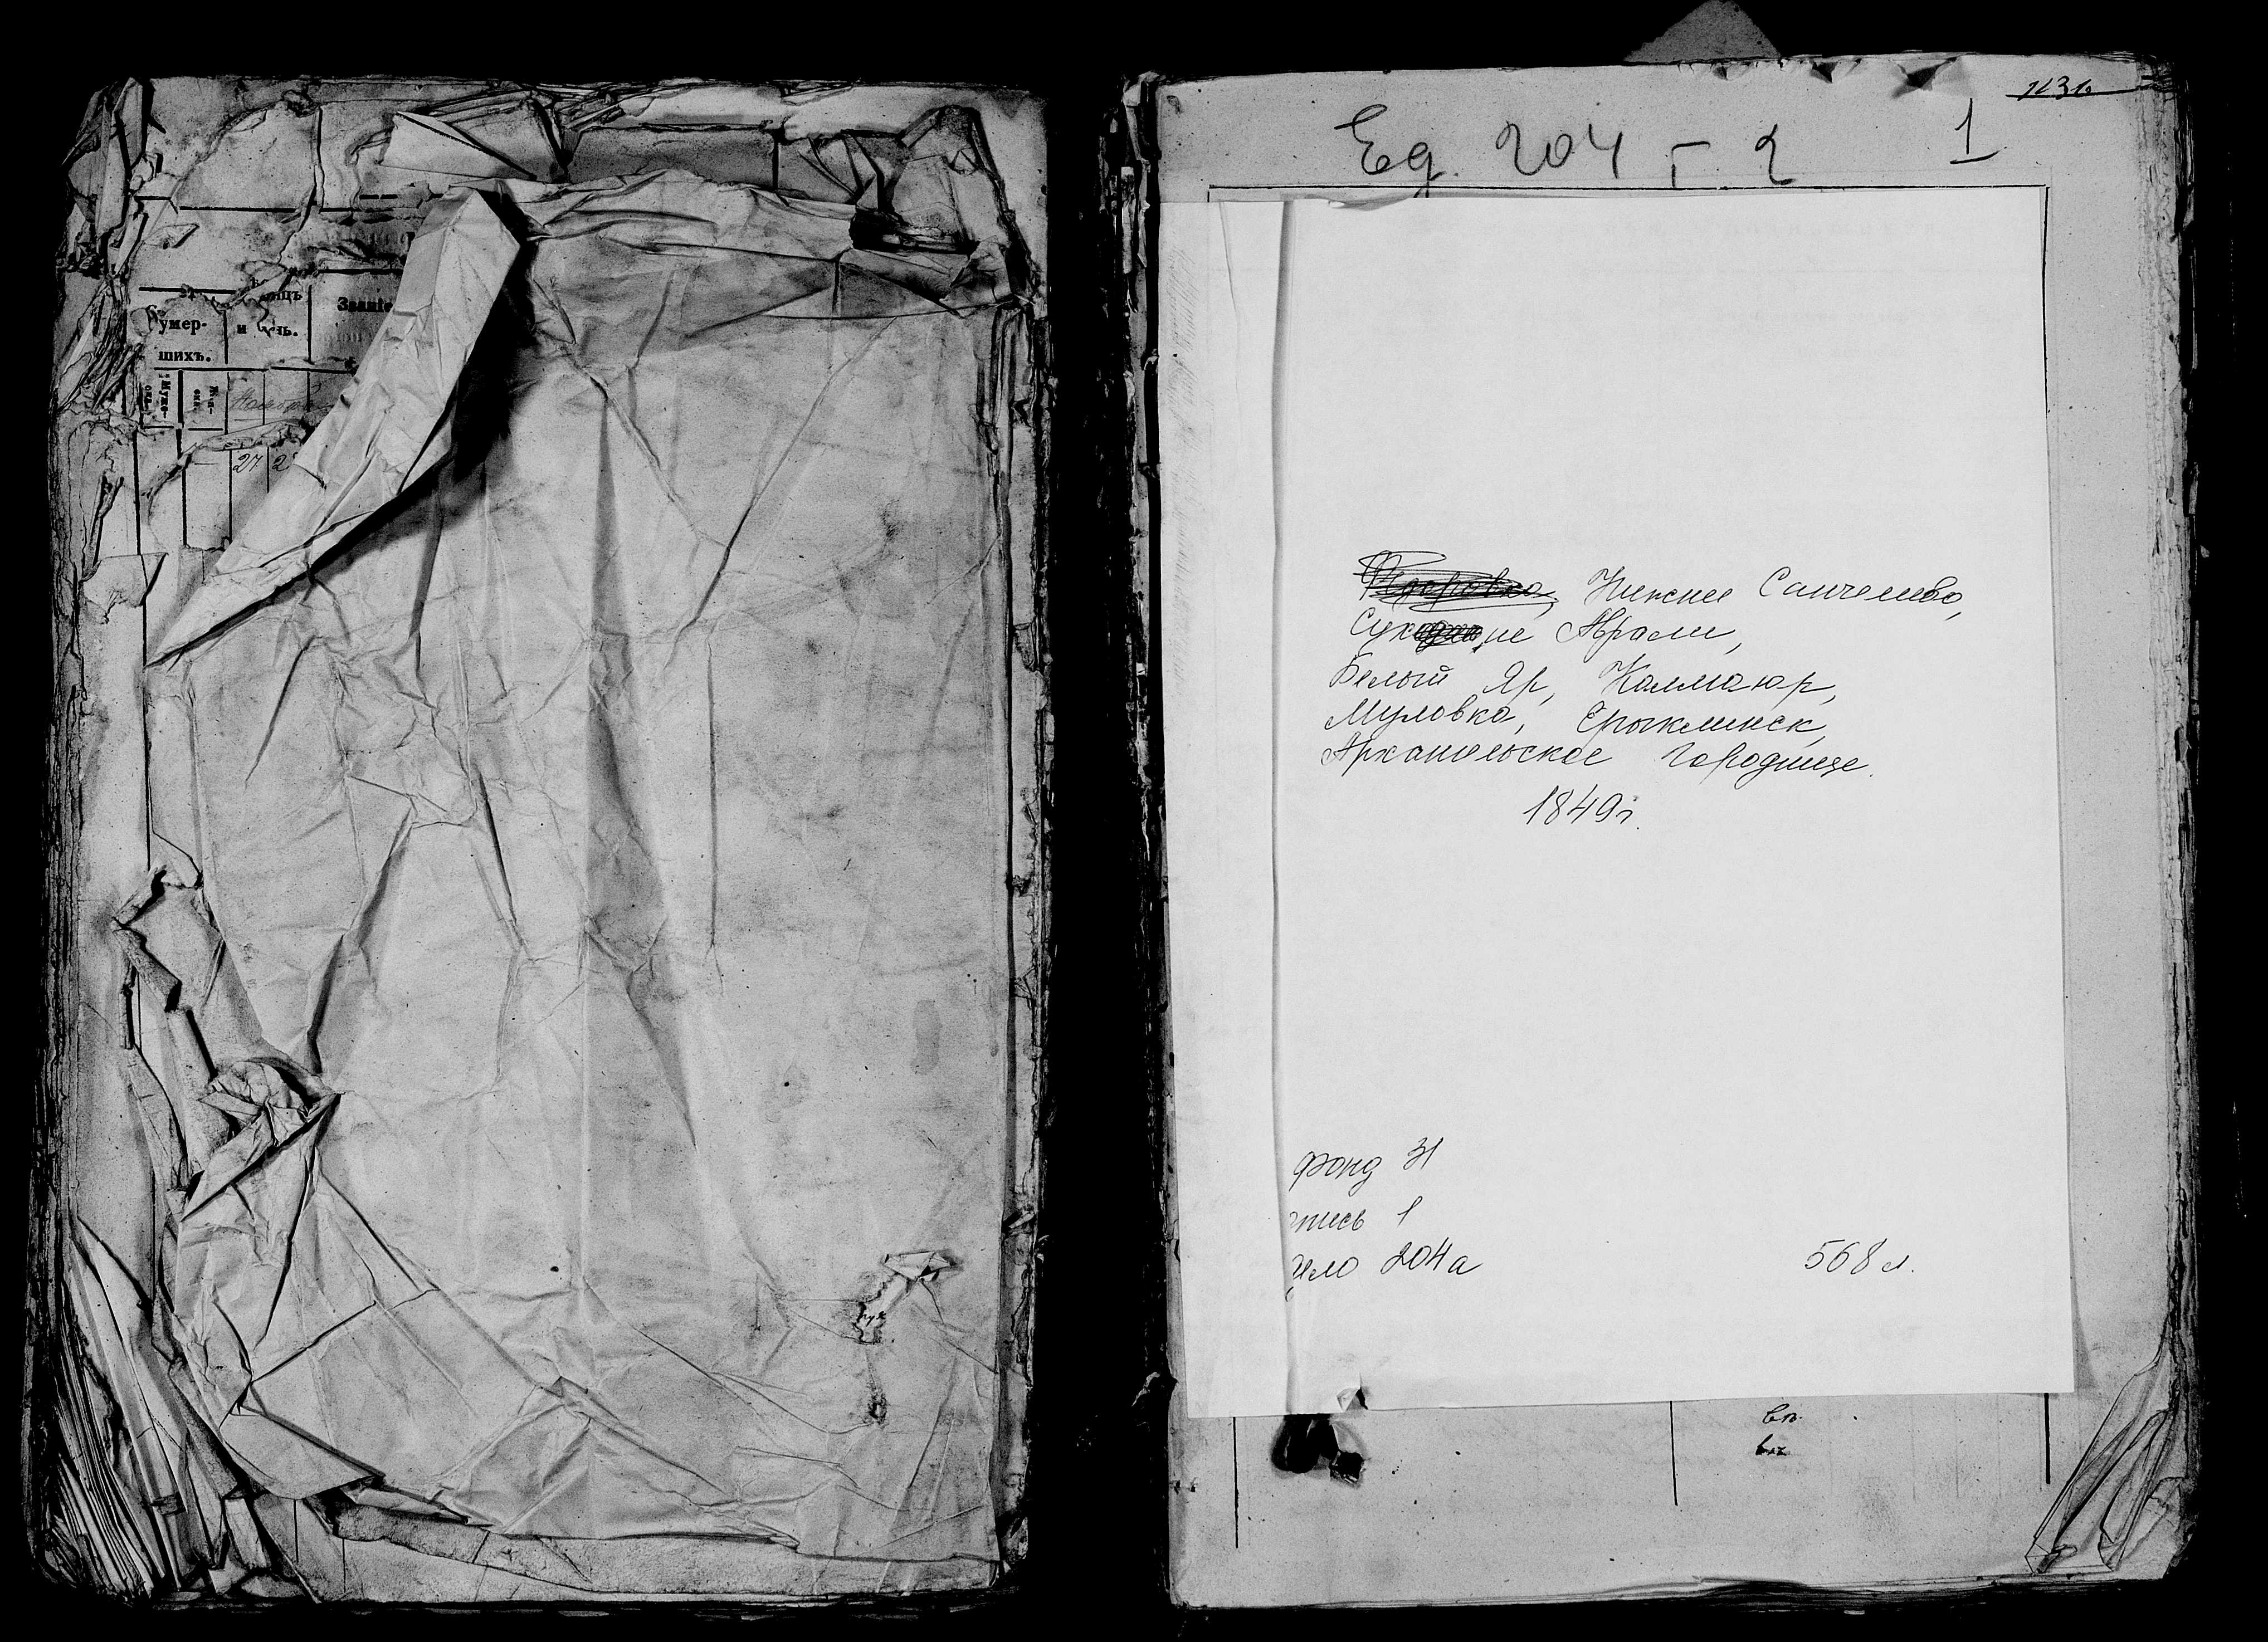 умер-
шихъ.
и
Званіе
27 2
1136
Ед. 204 - 2
1
Нижнее Санчелеево,
Сухие Аврали,
Белый Яр, Калмаюр,
Муловка, Ерыклинск,
Архангельское Городище.
1849г.
фонд 31
опись 1
дело 204а
568 л.